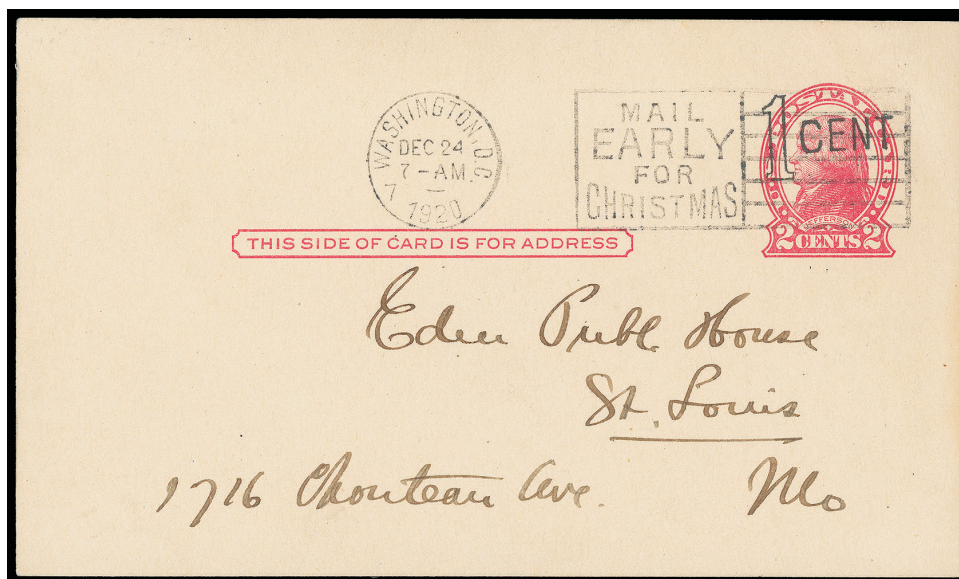 WASHINGTON, D.C.
DEC 24
7-AM.
1920
7
MAIL
EARLY
FOR
CHRISTMAS
1 CENT
POSTAL CARD
JEFFERSON
2 CENTS 2
THIS SIDE OF CARD IS FOR ADDRESS
Eden Publ House
St. Louis
1716 Chouteau Ave. Mo